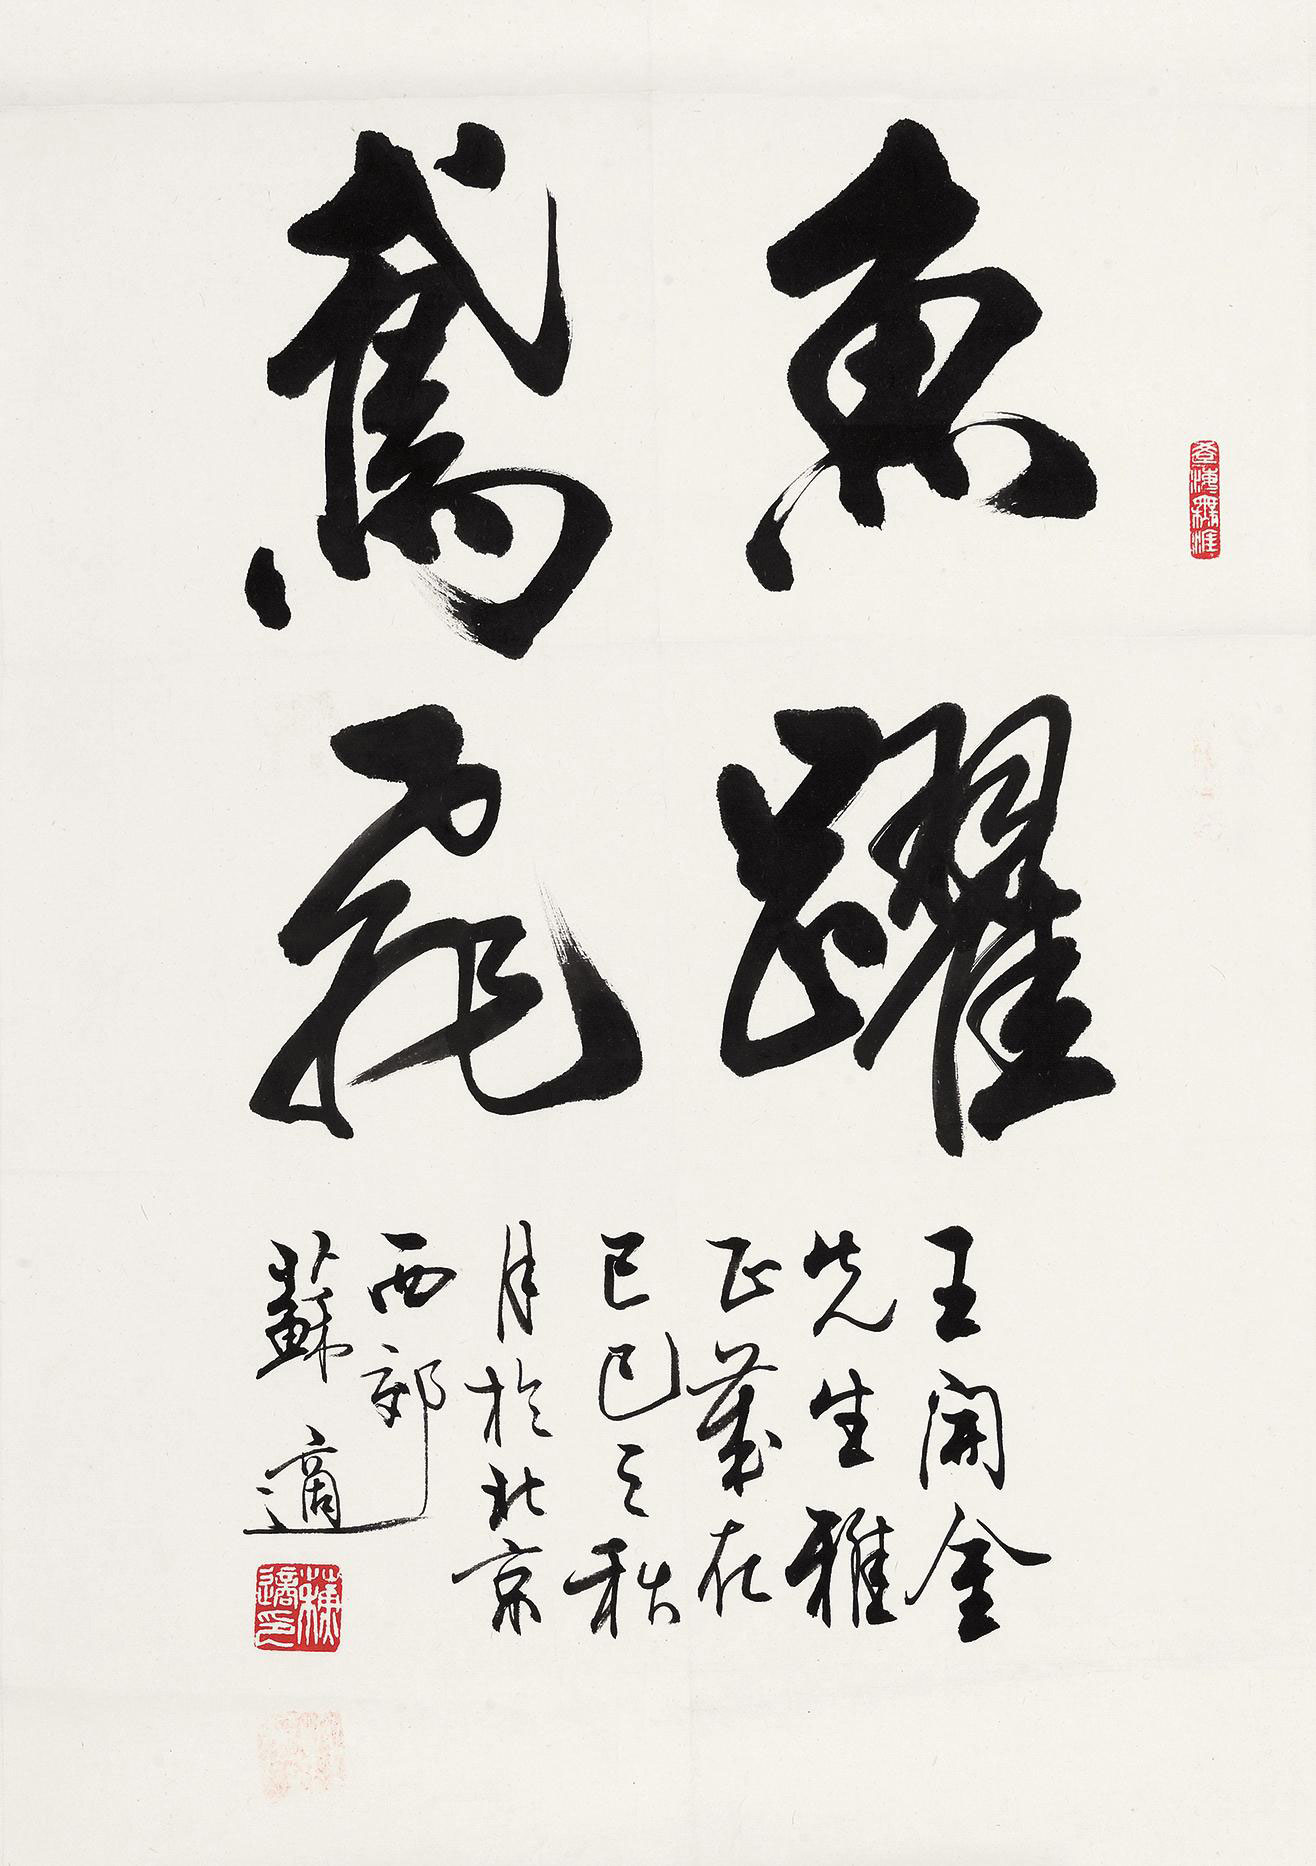 魚躍
鳶飛
王開金
先生雅
正歲在
己巳之秋
月於北京
西郊
蘇適
蘇適印